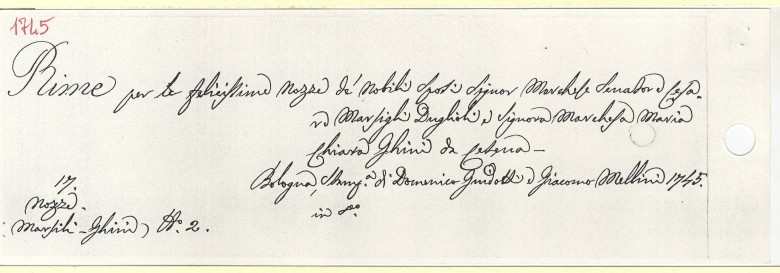 1745
Rime per le felicissime Nozze de' Nobili Sposi Signor Marchese Senatore Cesa-
re Marsigli Duglioli e Signora Marchesa Maria
Chiara Ghini da Cesena -
Bologna, Stamp.ª di Domenico Guidotti e Giacomo Mellini 1745.
in 8.º
17.
Nozze.
Marsili-Ghini) N.º 2.